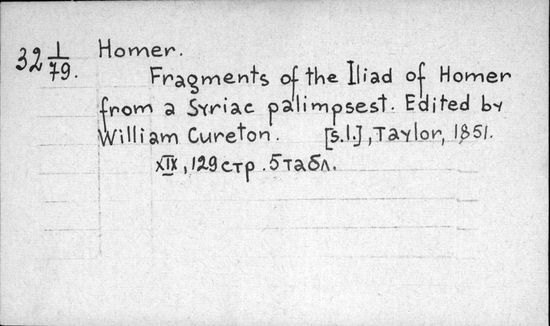 32 1/79. Homer.
Fragments of the Iliad of Homer
from a Syriac palimpsest. Edited by
William Cureton. [s.l.], Taylor, 1851.
XIX, 129 стр. 5 табл.